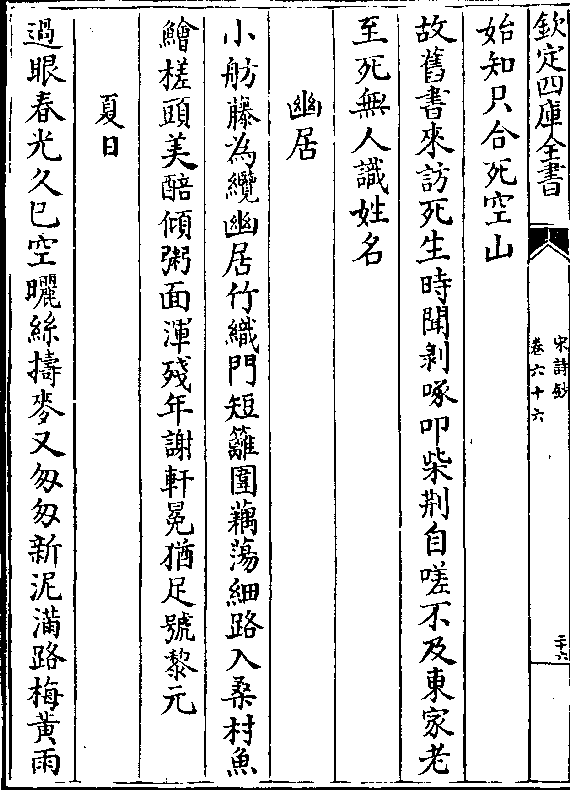 欽定四庫全書
宋詩鈔
卷六十六
二十六
始知只合死空山
故舊書來訪死生時聞剥啄叩柴荆自嗟不及東家老
至死無人識姓名
幽居
小舫藤為纜幽居竹織門短籬圍藕蕩細路入桑村魚
鱠槎頭美醅傾粥面渾殘年謝軒冕猶足號黎元
夏日
過眼春光久已空曬絲擣麥又匆匆新泥滿路梅黄雨